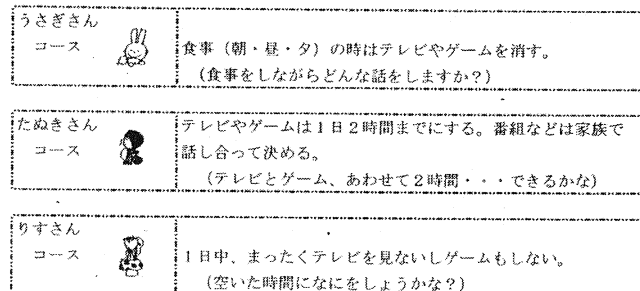 うさぎさん
コース
食事（朝・昼・夕）の時はテレビやゲームを消す。
（食事をしながらどんな話をしますか？）
たぬきさん
コース
テレビやゲームは１日２時間までにする。番組などは家族で
話し合って決める。
（テレビとゲーム、あわせて２時間・・・できるかな）
りすさん
コース
１日中、まったくテレビを見ないしゲームもしない。
（空いた時間になにをしょうかな？）